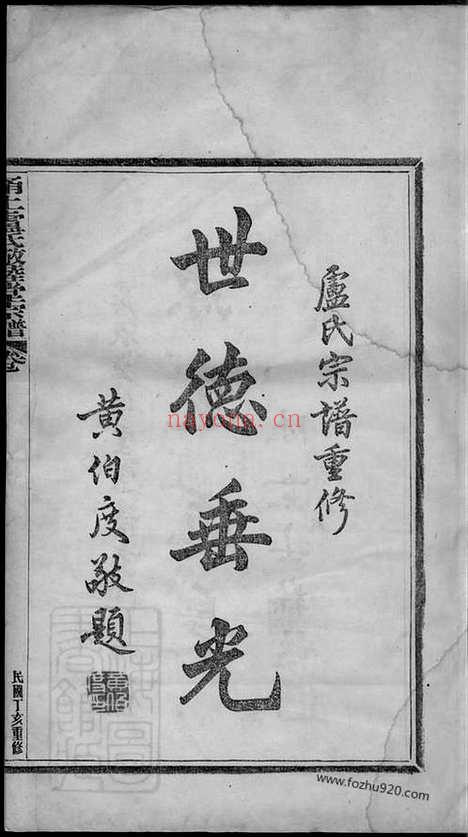 盧氏宗譜重修
世德垂光
黃伯度敬題
甬上盧氏敬睦堂宗譜
民國丁亥重修
nayona.cn
www.fozhu920.com